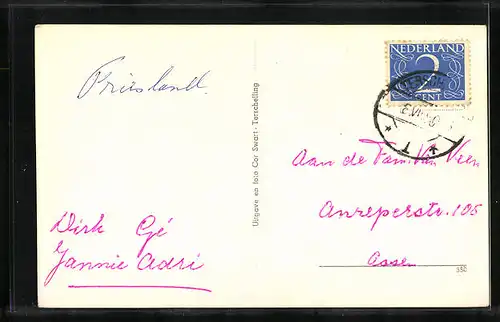 Friesland
NEDERLAND
2
CENT
Uitgave en foto Cor Swart - Terschelling
Aan de Fam. van Veen
Anreperstr. 105
Assen
Dirk Gé
Jannie Adri